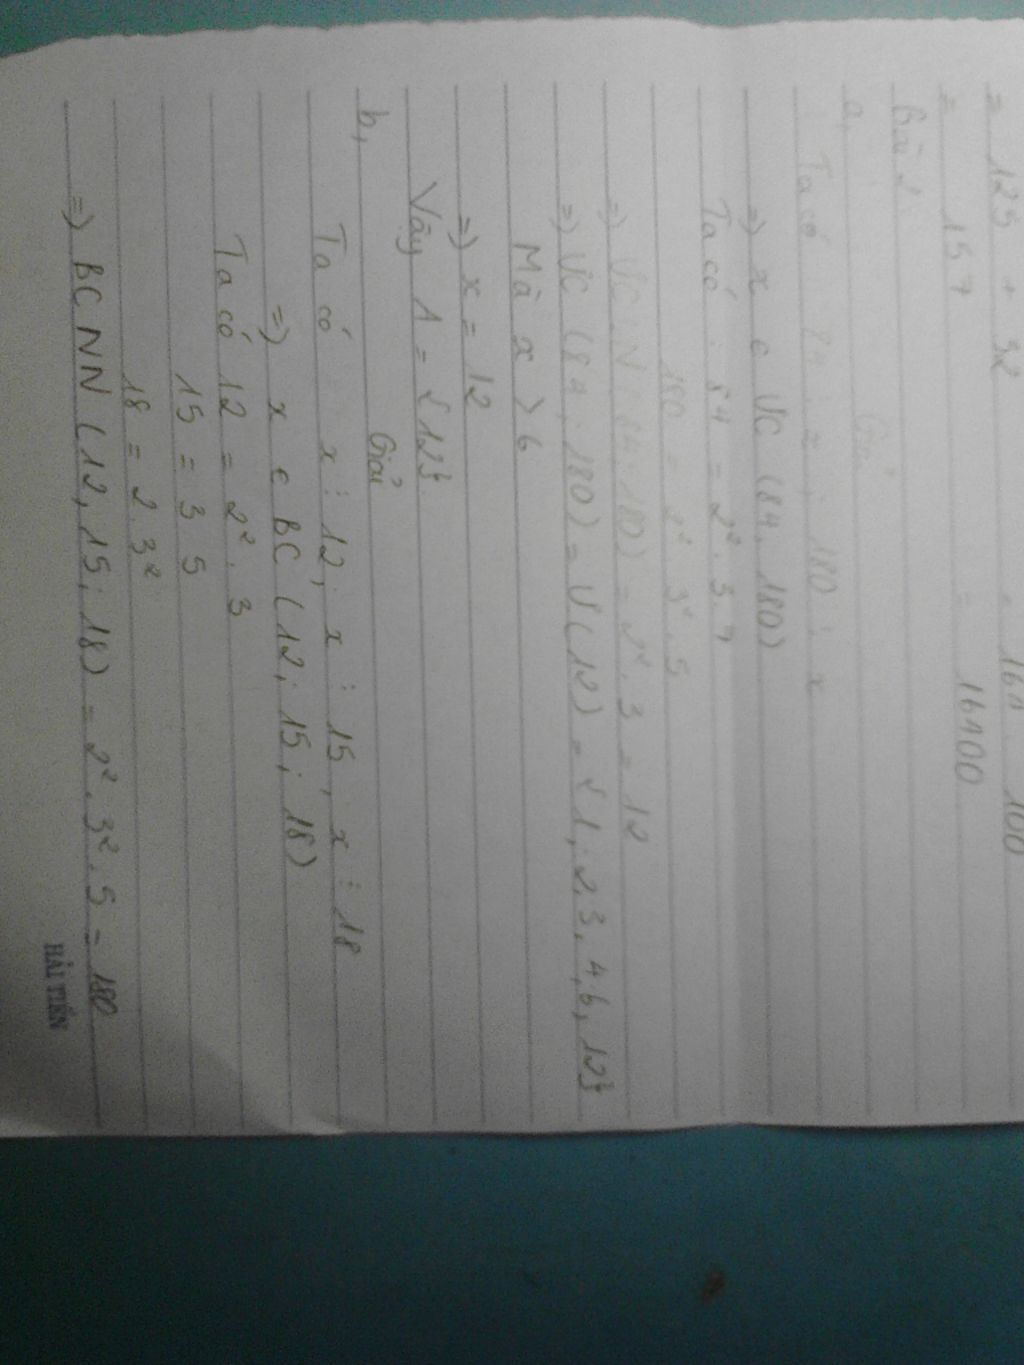 = 125 + 32
= 157
. 161 . 100
= 16100
Bài 2
a, Giải
Ta có 84 ⋮ x ; 180 ⋮ x
=) x ∈ ƯC (84, 180)
Ta có : 84 = 2². 3. 7
180 = 2². 3². 5
=) ƯCLN (84; 180) = 2². 3 = 12
=) ƯC (84; 180) = Ư(12) = {1, 2, 3, 4, 6, 12}
Mà x > 6
=) x = 12
Vậy A = {12}.
b, Giải
Ta có x ⋮ 12; x ⋮ 15, x ⋮ 18
=) x ∈ BC (12; 15; 18)
Ta có 12 = 2². 3
15 = 3 5
18 = 2. 3²
=) BCNN (12, 15; 18) = 2². 3². 5 = 180
HẢI TIẾN